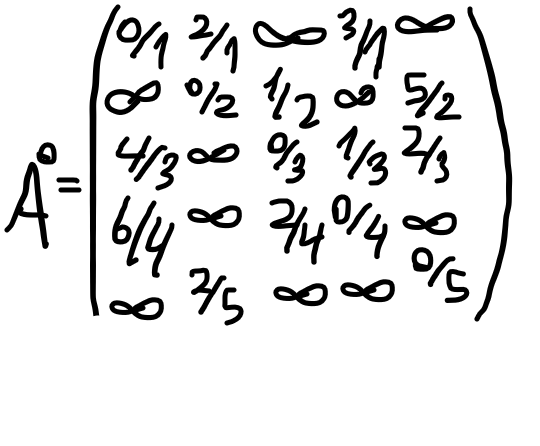 0/1 2/1 ∞ 3/1 ∞
∞ 0/2 1/2 ∞ 5/2
A⁰ = 4/3 ∞ 0/3 1/3 2/3
6/4 ∞ 2/4 0/4 ∞
∞ 2/5 ∞ ∞ 0/5